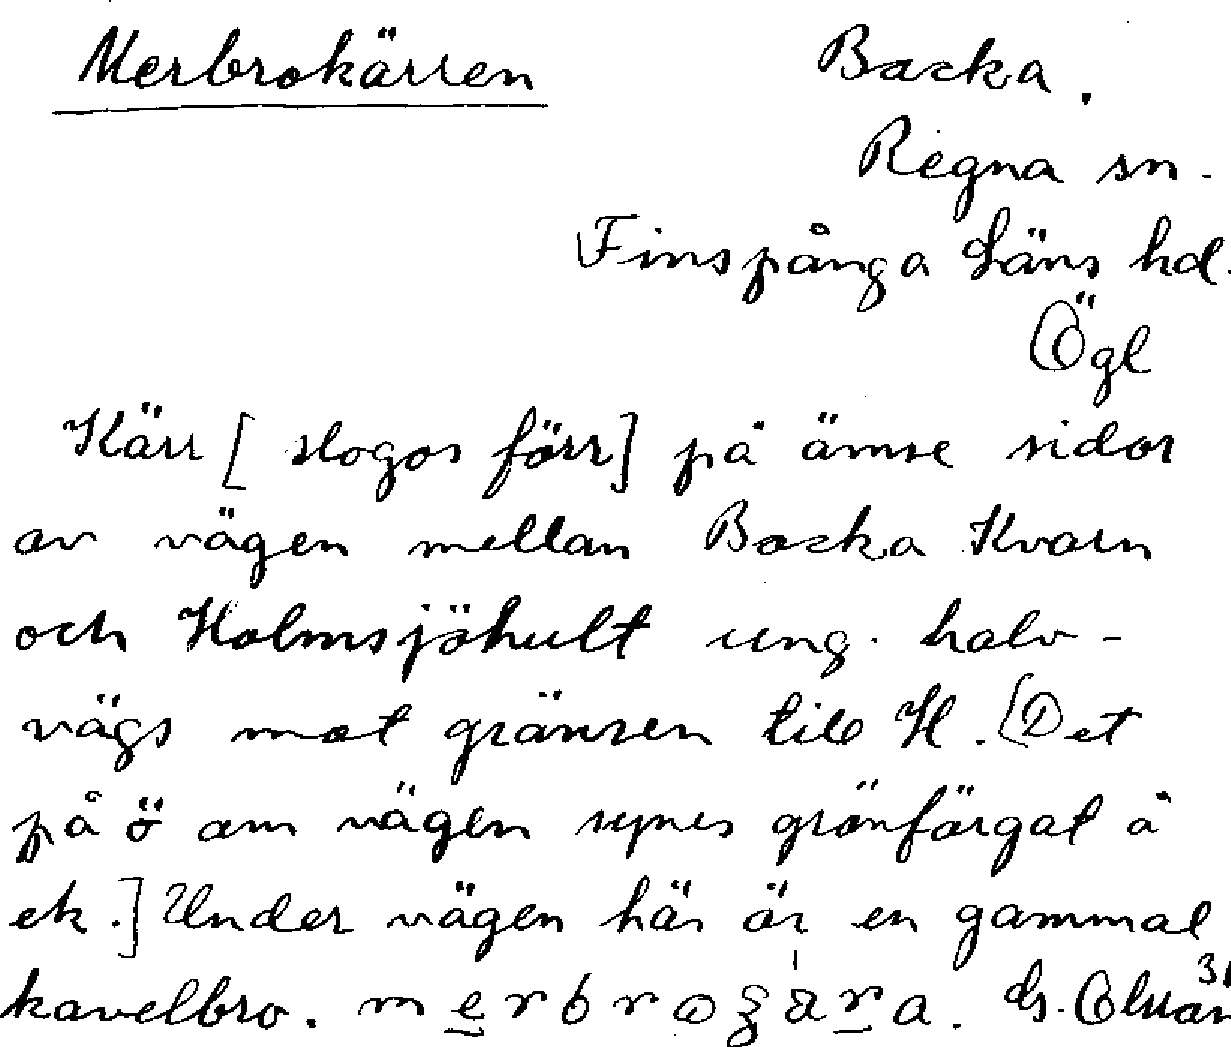 Merbrokärren
Backa.
Regna sn.
Finspånga Läns hd.
Ögl
Kärr [slogos förr] på ömse sidor
av vägen mellan Backa Kvarn
och Holmsjöhult ung. halv-
vägs mot gränsen till H. [Det
på ö om vägen synes grönfärgat å
ek.] Under vägen här är en gammal
kavelbro. G.